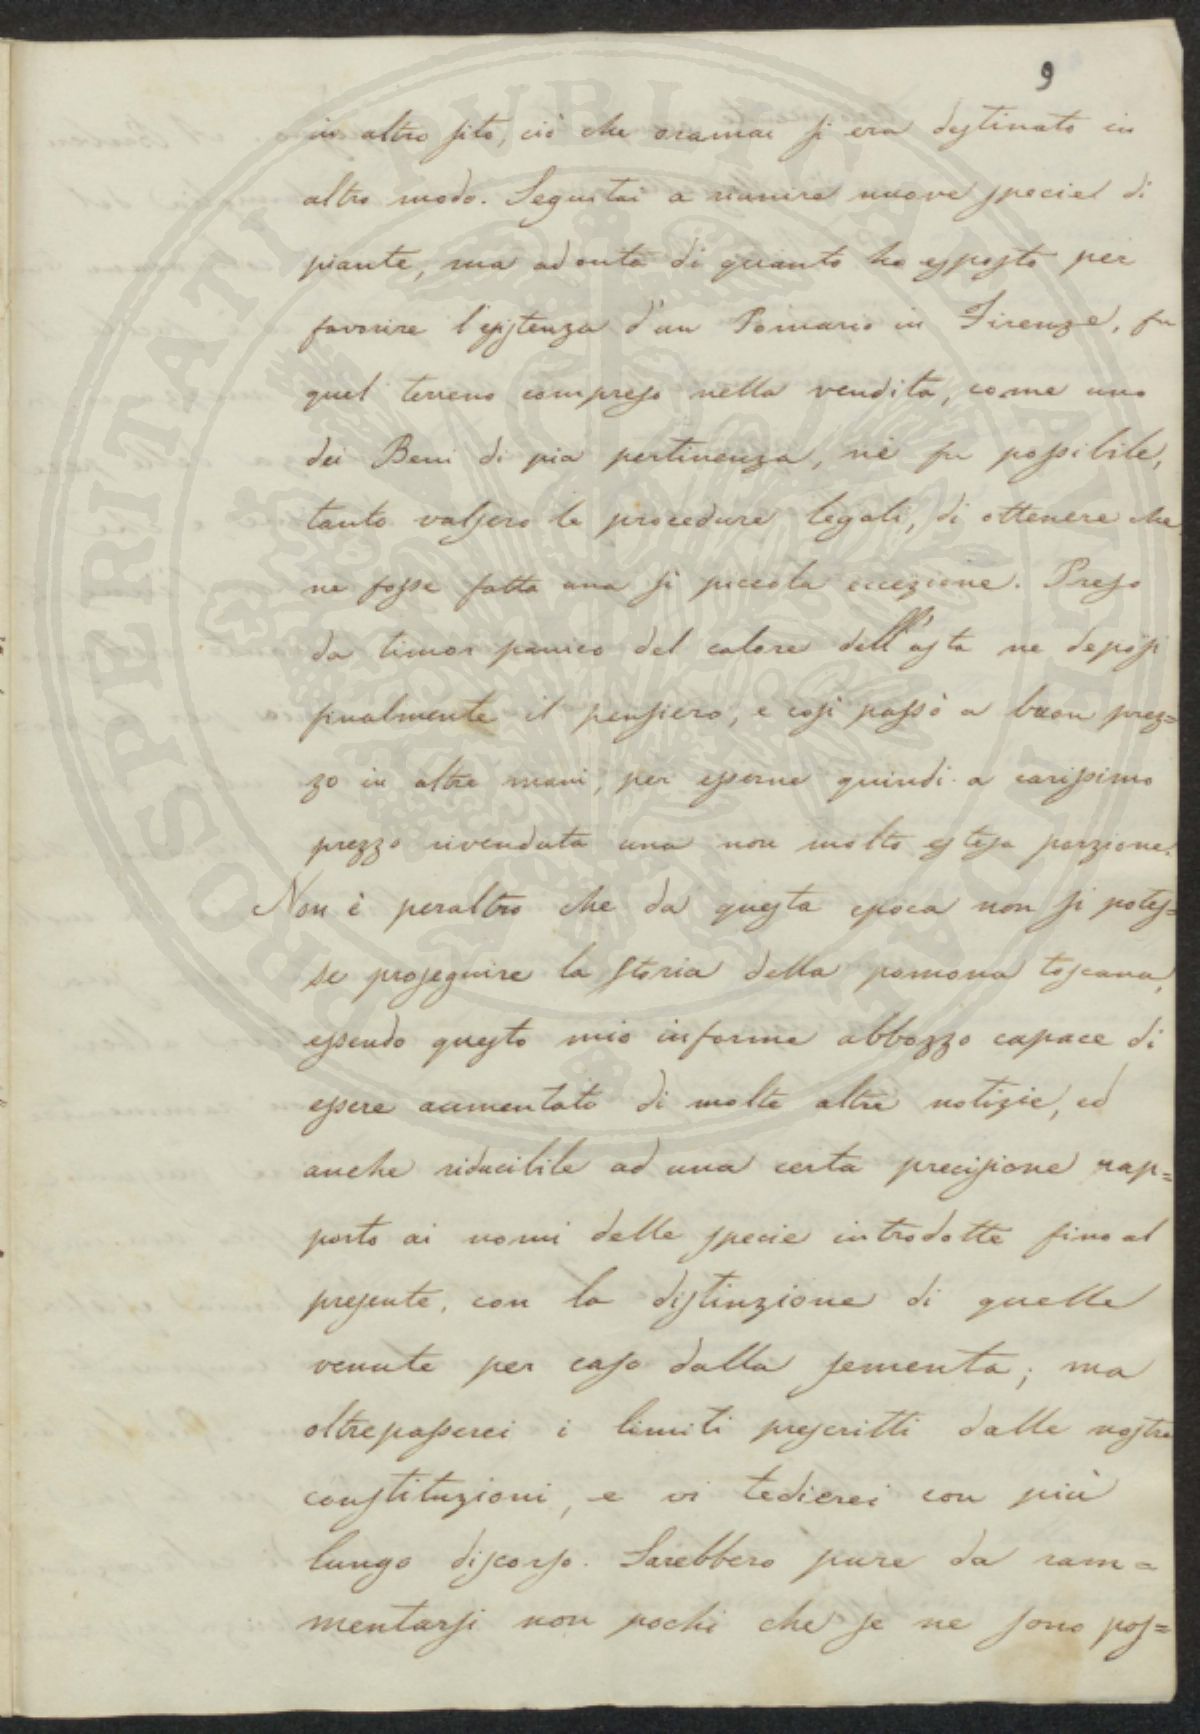 9
in altro sito, ciò che oramai si era destinato in
altro modo. Seguitai a riunire nuove specie di
piante, ma ad onta di quanto ho esposto per
favorire l'esistenza d'un Pomario in Firenze, fu
quel terreno compreso nella vendita, come uno
dei Beni di pia pertinenza, nè fu possibile,
tanto valsero le procedure legali, di ottenere che
ne fosse fatta una sì piccola eccezione. Preso
da timor panico del calore dell'asta ne deposi
finalmente il pensiero, e così passò a buon prez=
zo in altre mani, per esserne quindi a carissimo
prezzo rivenduta una non molto estesa porzione.
Non è peraltro che da questa epoca non si potes=
se proseguire la storia della pomona toscana,
essendo questo mio informe abbozzo capace di
essere aumentato di molte altre notizie, ed
anche riducibile ad una certa precisione rap=
porto ai nomi delle specie introdotte fino al
presente, con la distinzione di quelle
venute per caso dalla sementa; ma
oltrepasserei i limiti prescritti dalle nostre
constituzioni, e vi tedierei con più
lungo discorso. Sarebbero pure da ram=
mentarsi non pochi che se ne sono pos=
PROSPERITATI PUBLICAE AUGENDAE